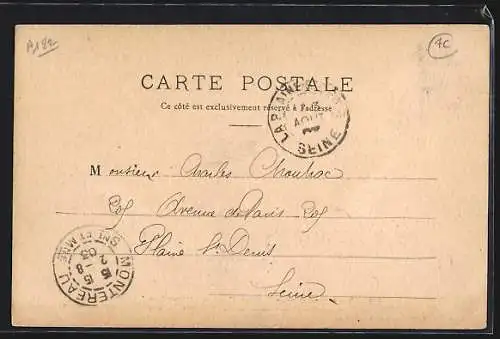 A182
4C
CARTE POSTALE
Ce côté est exclusivement réservé à l'adresse
LA PLAINE
AOUT
SEINE
Monsieur Charles
208 Avenue de Paris 208
Plaine St Denis
Seine
MONTEREAU
15 15-8
2 03
SNE ET MNE